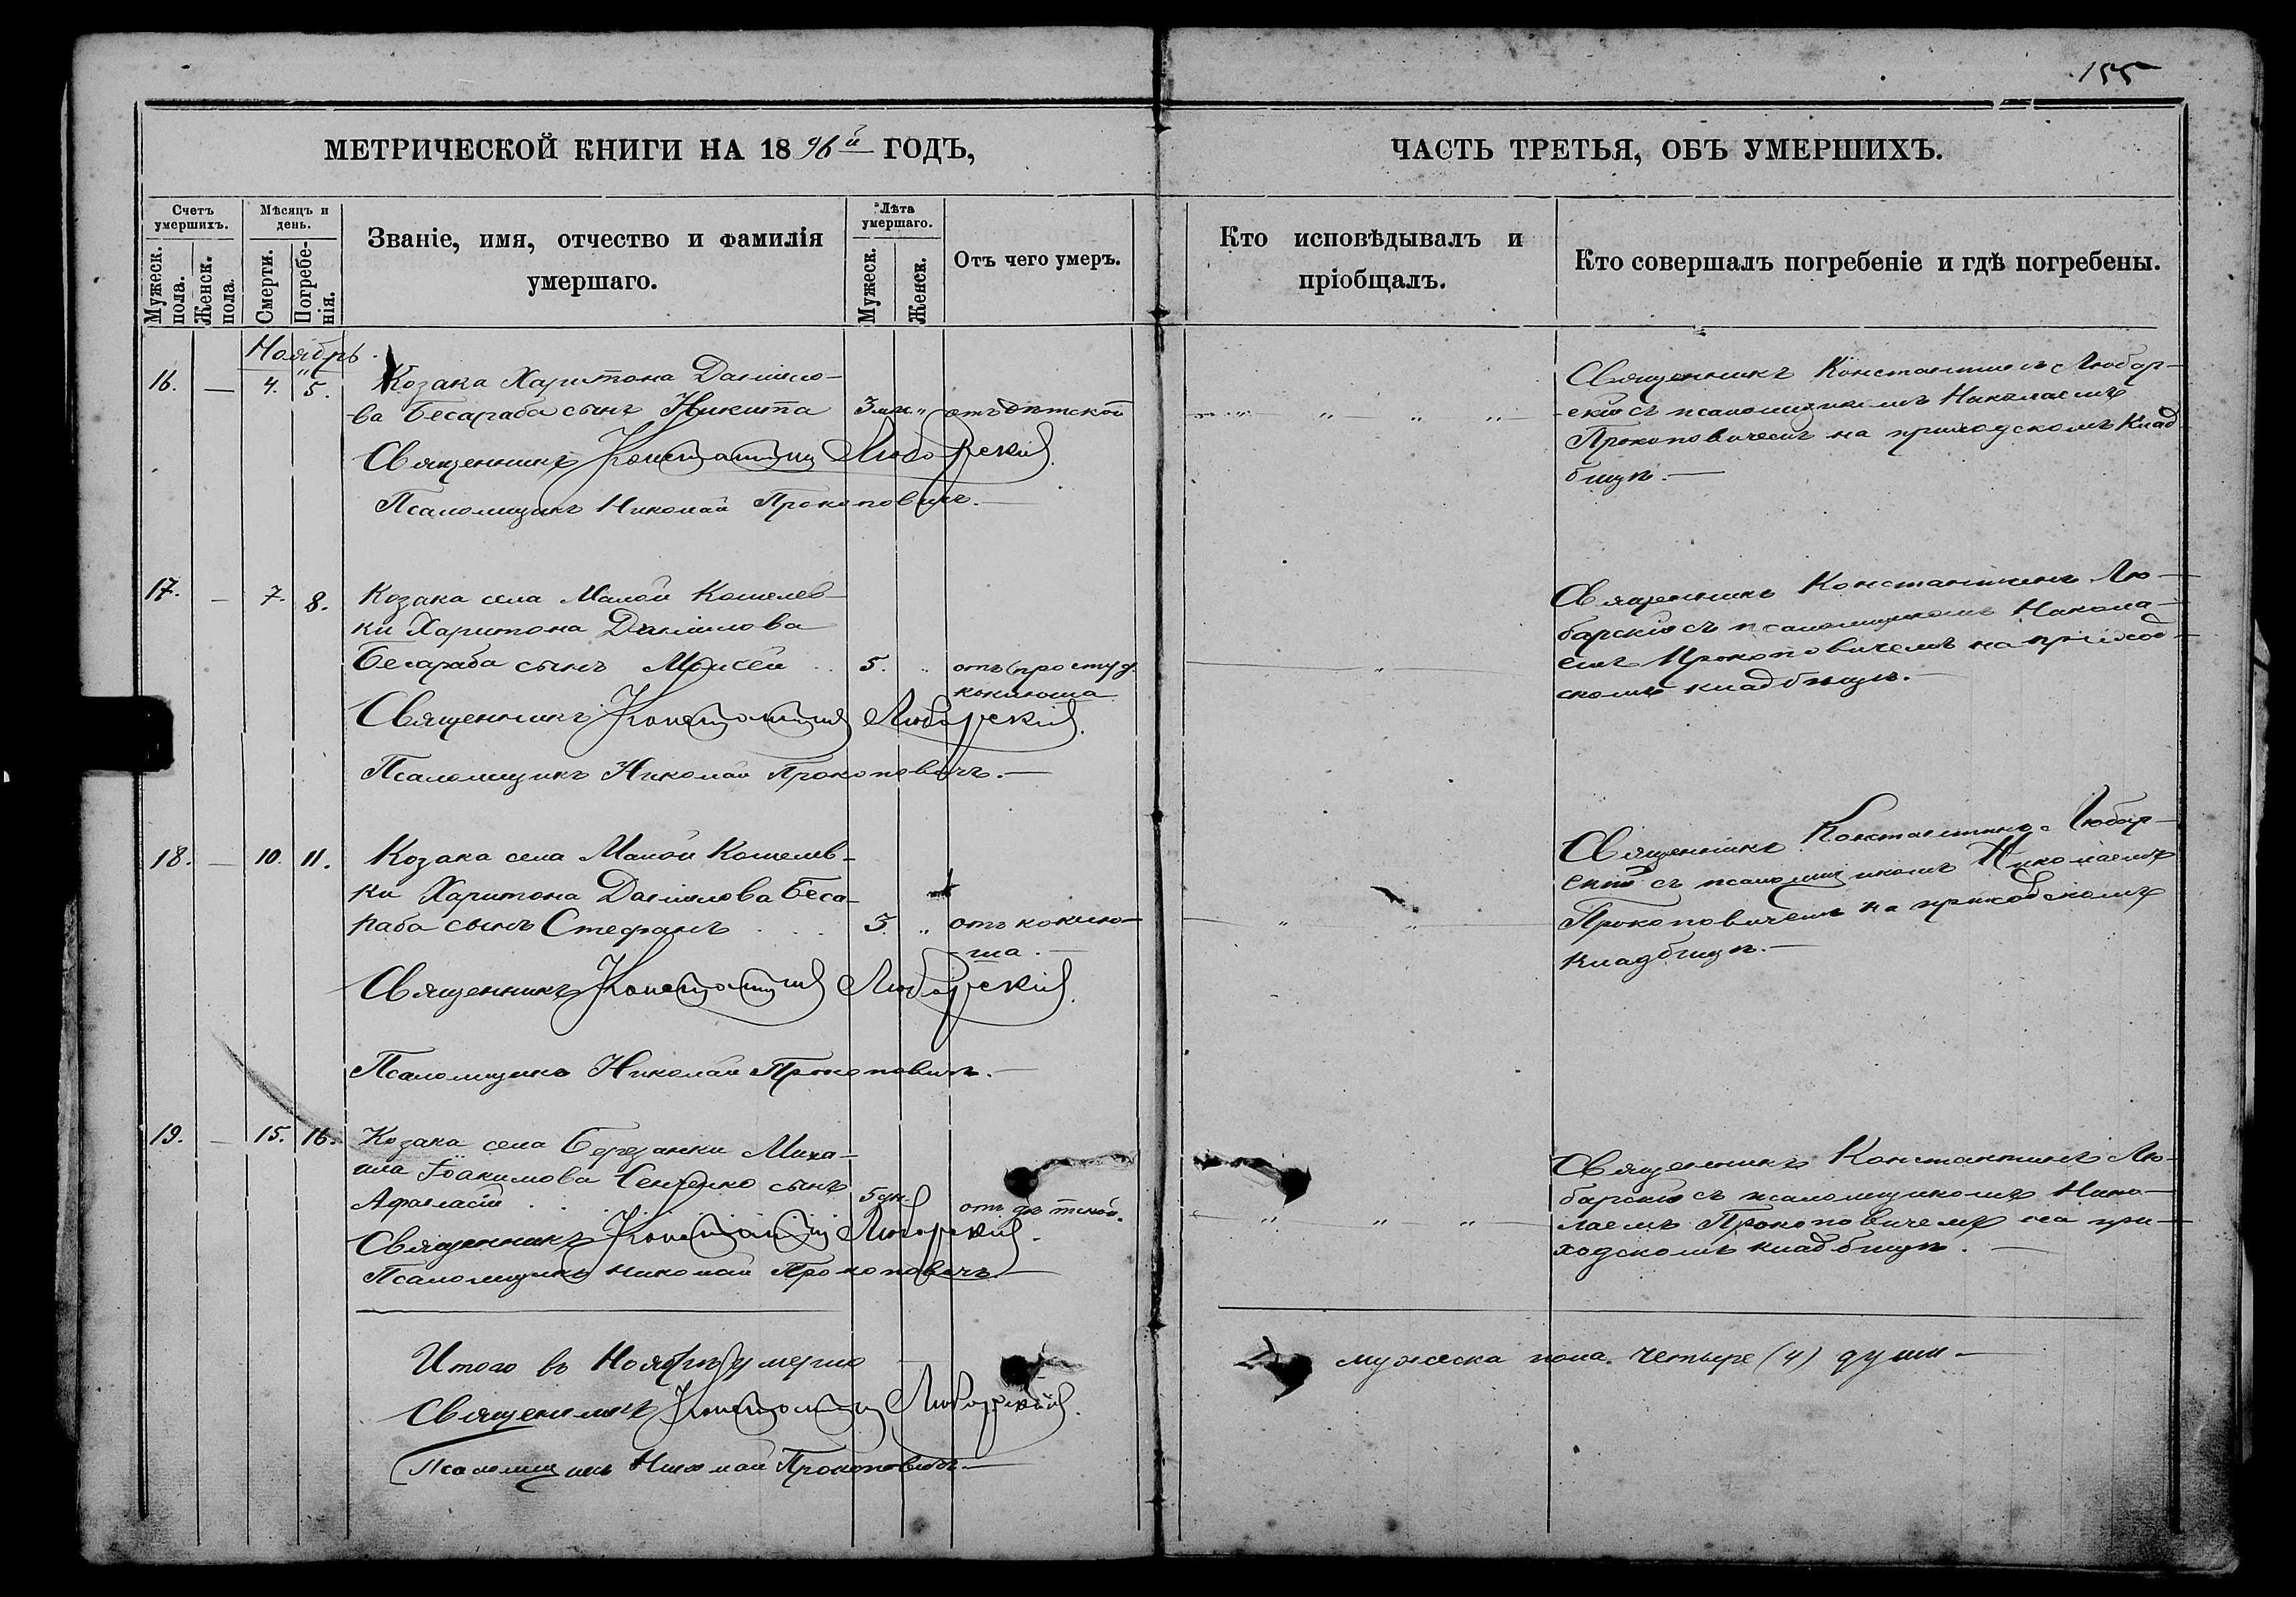 155
МЕТРИЧЕСКОЙ КНИГИ НА 1896й ГОДЪ,
ЧАСТЬ ТРЕТЬЯ, ОБЪ УМЕРШИХЪ.
Счетъ умершихъ.
Мужеск. пола.
Женск. пола.
Мѣсяцъ и день.
Смерти.
Погребенія.
Званіе, имя, отчество и фамилія
умершаго.
Лѣта умершаго.
Мужеск.
Женск.
Отъ чего умеръ.
Кто исповѣдывалъ и
пріобщалъ.
Кто совершалъ погребеніе и гдѣ погребены.
Ноябрь
16. — 4. 5. Козака Харитона Данило-
ва Бесараба сынъ Никита 3 „ отъ дѣтской
Священникъ Константинъ Любарскій.
Псаломщикъ Николай Прокоповичъ.—
Священникъ Константинъ Любар-
скій съ псаломщикомъ Николаемъ
Прокоповичемъ на приходскомъ клад
бищѣ.—
17. — 7. 8. Козака села Малой Кошелев-
ки Харитона Данилова
Бесараба сынъ Моисей 5. „ отъ простуд.
коклюша
Священникъ Константинъ Любарскій.
Псаломщикъ Николай Прокоповичъ.—
Священникъ Константинъ Лю-
барскій съ псаломщикомъ Никола-
емъ Прокоповичемъ на приход-
скомъ кладбищѣ.—
18. — 10. 11. Козака села Малой Кошелев-
ки Харитона Данилова Беса-
раба сынъ Стефанъ 3. „ отъ коклю-
ша.—
Священникъ Константинъ Любарскій.
Псаломщикъ Николай Прокоповичъ.—
Священникъ Константинъ Любар-
скій съ псаломщикомъ Николаемъ
Прокоповичемъ на приходскомъ
кладбищѣ.—
19. — 15. 16. Козака села Березанки Миха-
ила Іоакимова Сенченко сынъ
Афанасій 5 дн. отъ дѣтской.
Священникъ Константинъ Любарскій.
Псаломщикъ Николай Прокоповичъ.—
Священникъ Константинъ Лю-
барскій съ псаломщикомъ Нико-
лаемъ Прокоповичемъ на при-
ходскомъ кладбищѣ.—
Итого въ Ноябрѣ умерло — мужеска пола. четыре (4) души—
Священникъ Константинъ Любарскій.
Псаломщикъ Николай Прокоповичъ.—